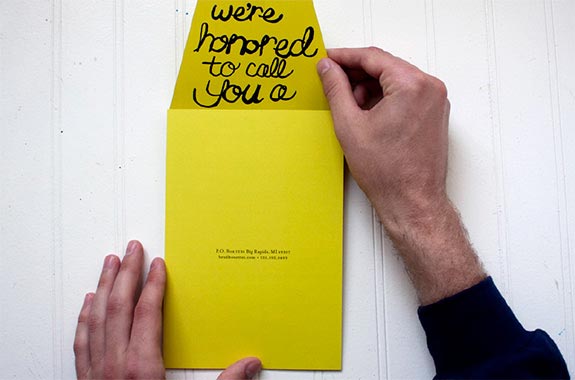 we're
honored
to call
you a
P.O. Box Big Rapids, MI